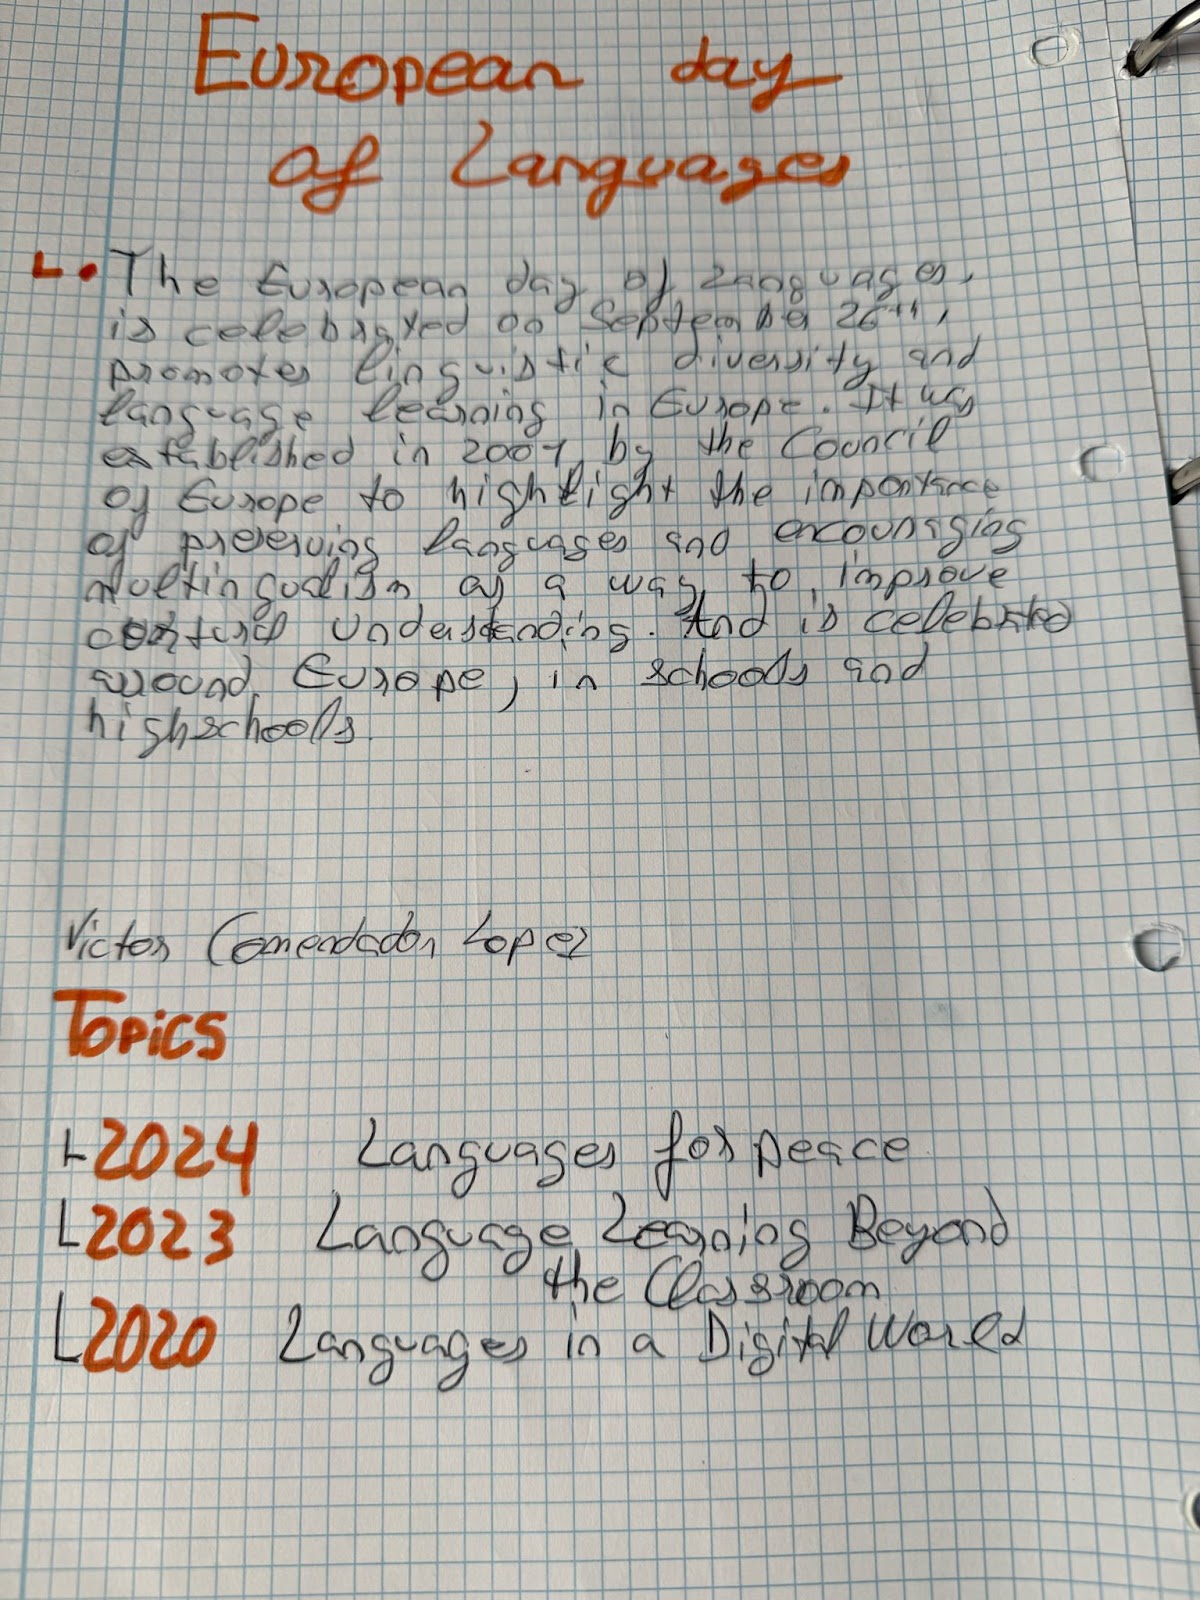 European day
of Languages
The European day of Languages,
is celebrated on September 26th,
promotes linguistic diversity and
language learning in Europe. It was
established in 2001 by the Council
of Europe to highlight the importance
of preserving languages and encouraging
multingualism as a way to improve
understanding. And is celebrated
around Europe, in schools and
highschools.
Victor Comendador Lopez
Topics
2024 Languages for peace
2023 Language Learning Beyond
the Classroom
2020 Languages in a Digital World